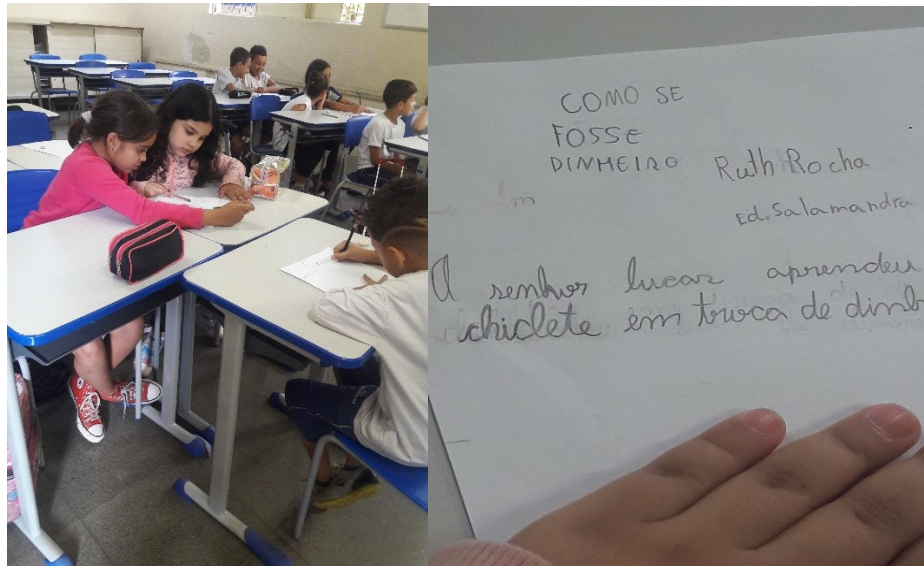 COMO SE
FOSSE
DINHEIRO Ruth Rocha
Ed. Salamandra
O senhor lucas aprendeu
chiclete em troca de dinh